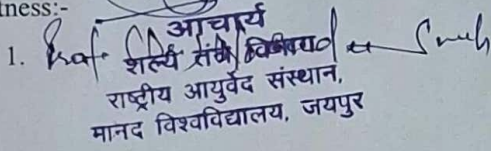 tness:-
आचार्य
1. Prof. शल्य तंत्र विभाग
राष्ट्रीय आयुर्वेद संस्थान,
मानद विश्वविद्यालय, जयपुर